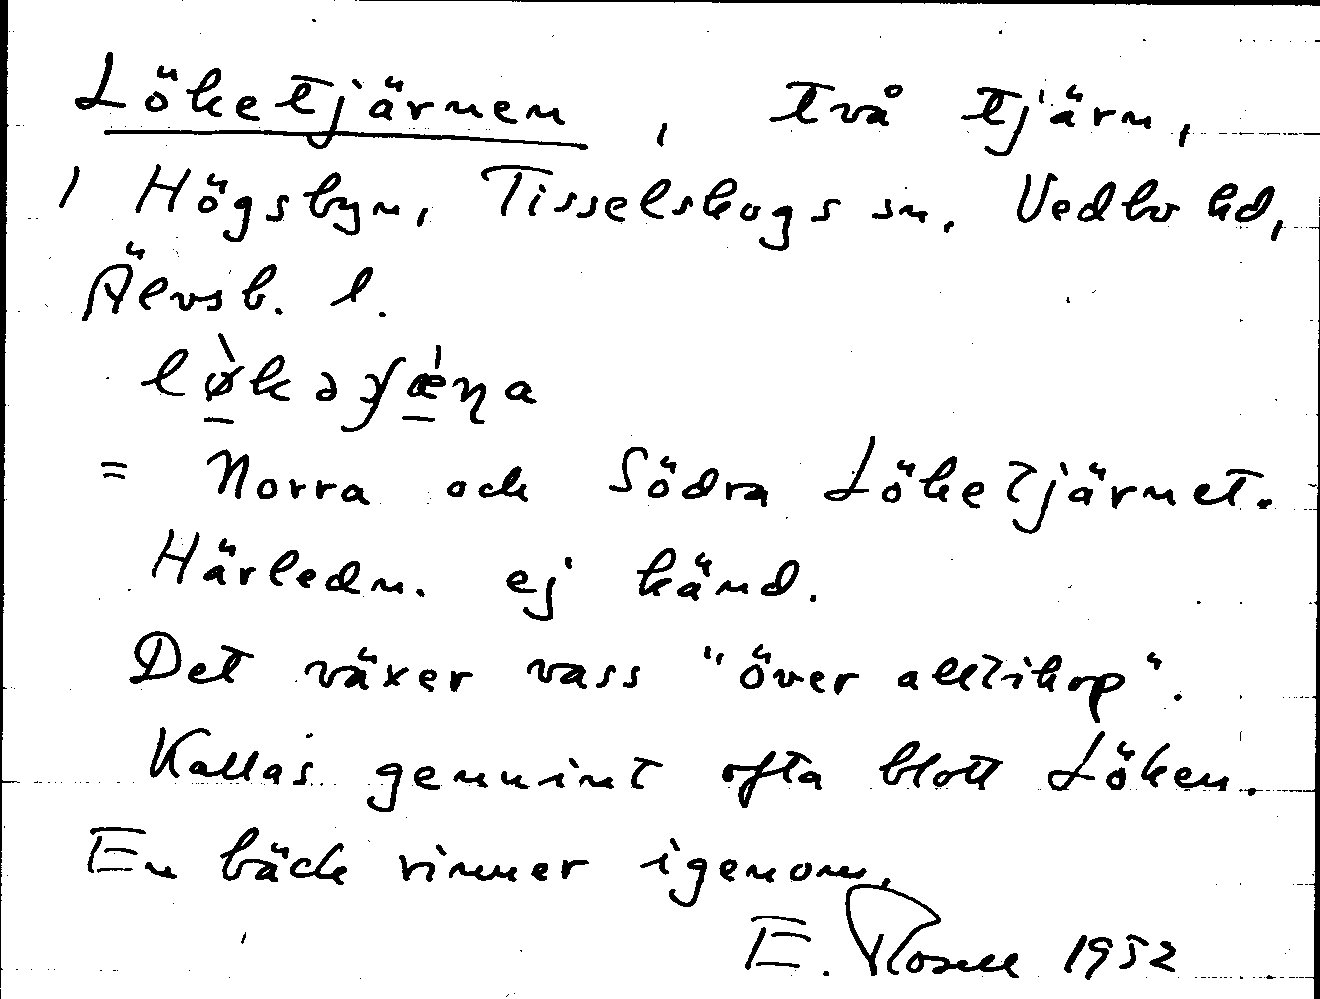 Löketjärnen, två tjärn,
i Högsbyn, Tisselskogs sn, Vedbo hd,
Älvsb. l.
= Norra och Södra Löketjärnet.
Härledn. ej känd.
Det växer vass "över alltihop".
Kallas genuint ofta blott Löken.
En bäck rinner igenom.
E. Rosell 1952